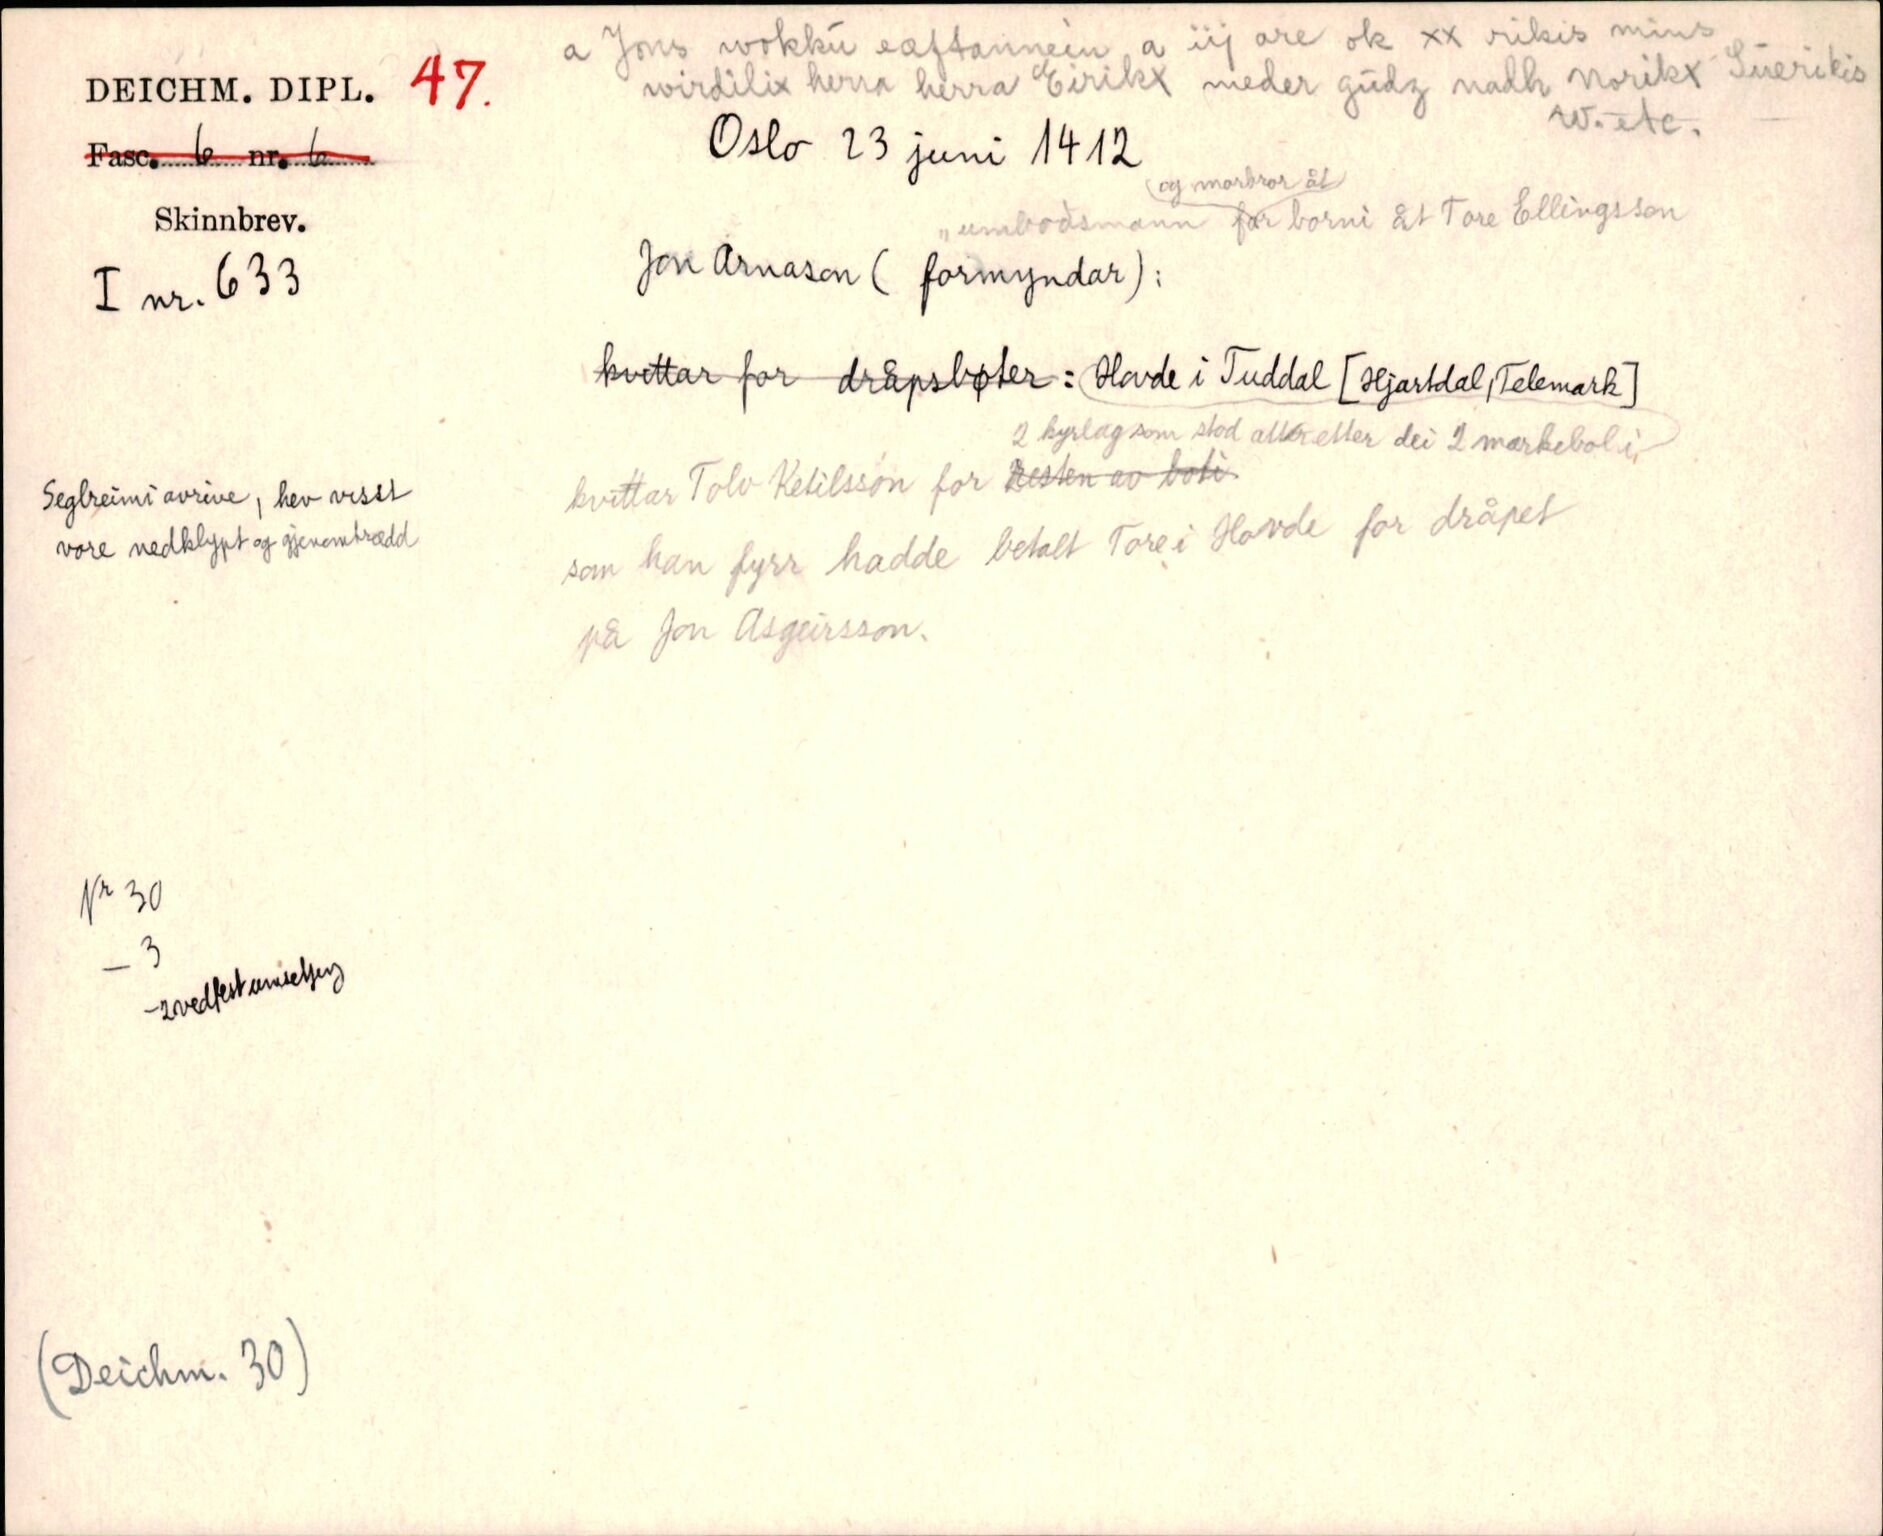 a Jons wokkū eæftannein a iij are ok xx rikis mins
wirdilix herra herra Eirikx meder gūdz nadh Norikx Sūerikis
w. etc.
DEICHM. DIPL. 47.
Oslo 23 juni 1412
Fasc. 6 nr. 6
og morbror åt
Skinnbrev.
"umbodsmann for borni åt Tore Ellingsson
I nr. 633
Jon Arnason ( formyndar):
kvittar for dråpsbøter: Hovde i Tuddal [Hjartdal, Telemark]
2 kyrlag som stod atter etter dei 2 markebol i
kvittar Tolv Ketilsson for Resten av boti
Seglreimi avrive, hev visst
vore nedklypt og gjenomtrædd
som han fyrr hadde betalt Tore i Hovde for dråpet
på Jon Asgeirsson.
Nr 30
– 3
– 2 vedfest umsetjing
(Deichm. 30)